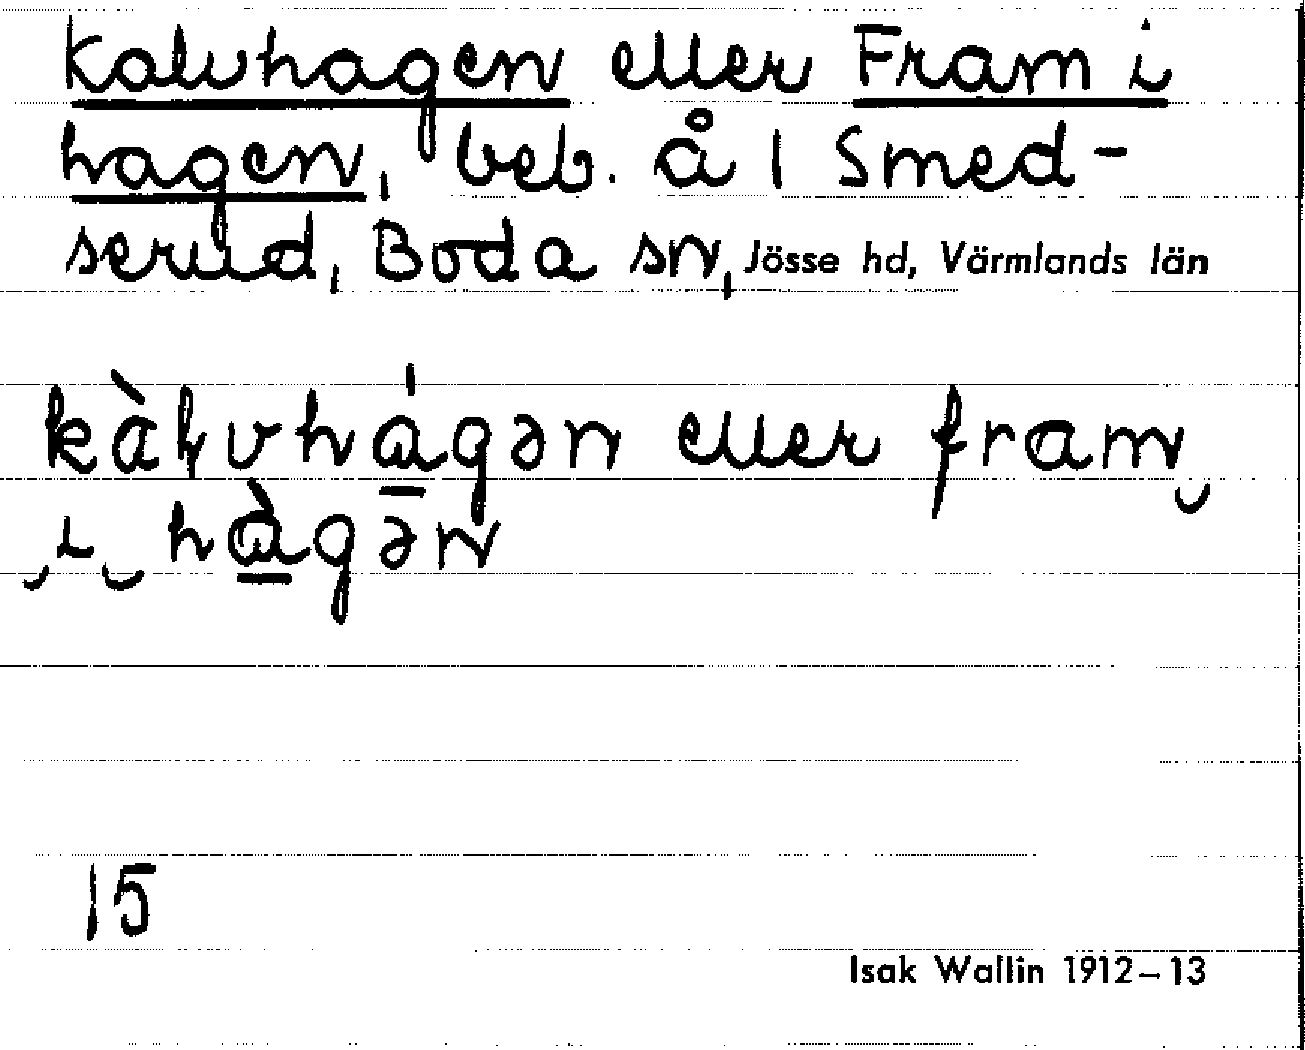 Kalvhagen eller Fram i
hagen, beb. å 1 Smed-
serud, Boda sn, Jösse hd, Värmlands län
kàɫvhágən eller fram‿
‿i‿hàgən
15
Isak Wallin 1912–13